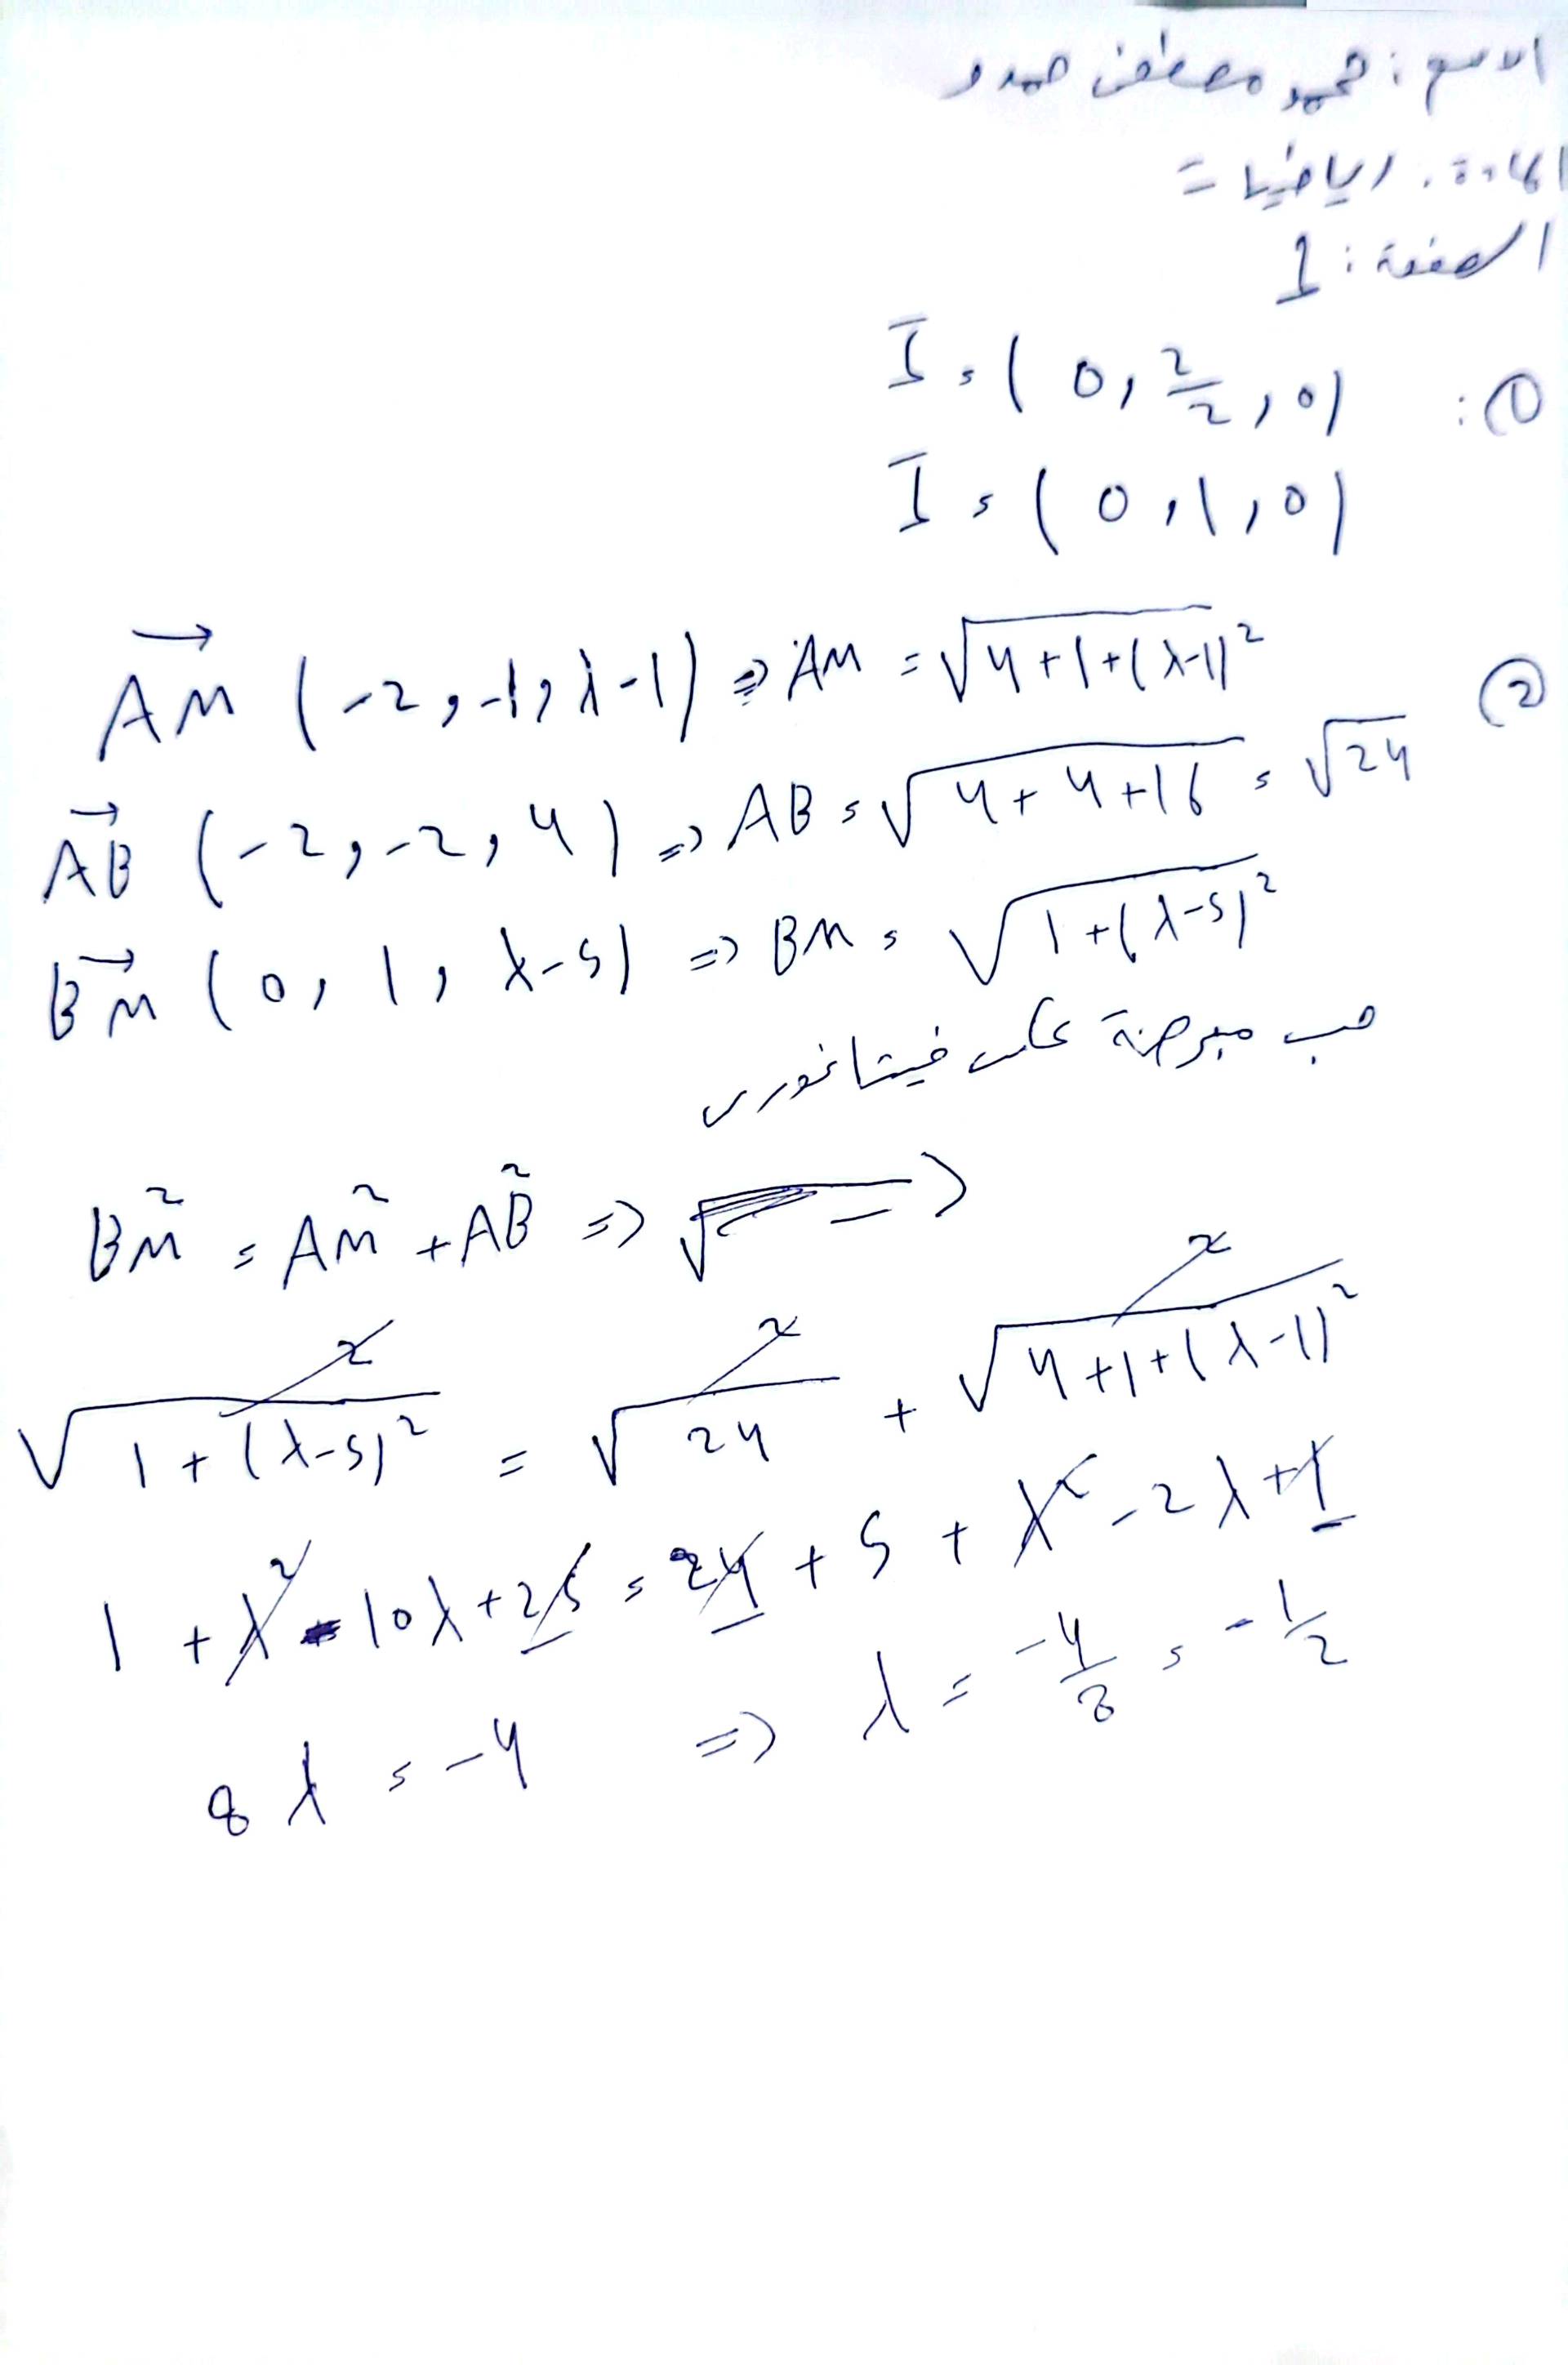 الاسم : محمد مصطفى حمدو
المادة : رياضيات
الصفحة : 1
① : I = (0, 2/2, 0)
I = (0, 1, 0)
② AM→ (-2, -1, λ-1) => AM = √(4+1+(λ-1)²)
AB→ (-2, -2, 4) => AB = √(4+4+16) = √24
BM→ (0, 1, λ-5) => BM = √(1+(λ-5)²)
حسب مبرهنة عكس فيتاغورث
BM² = AM² + AB² =>
√(1+(λ-5)²)² = √24² + √(4+1+(λ-1)²)²
1 + λ² - 10λ + 25 = 24 + 5 + λ² - 2λ + 1
8λ = -4 => λ = -4/8 = -1/2